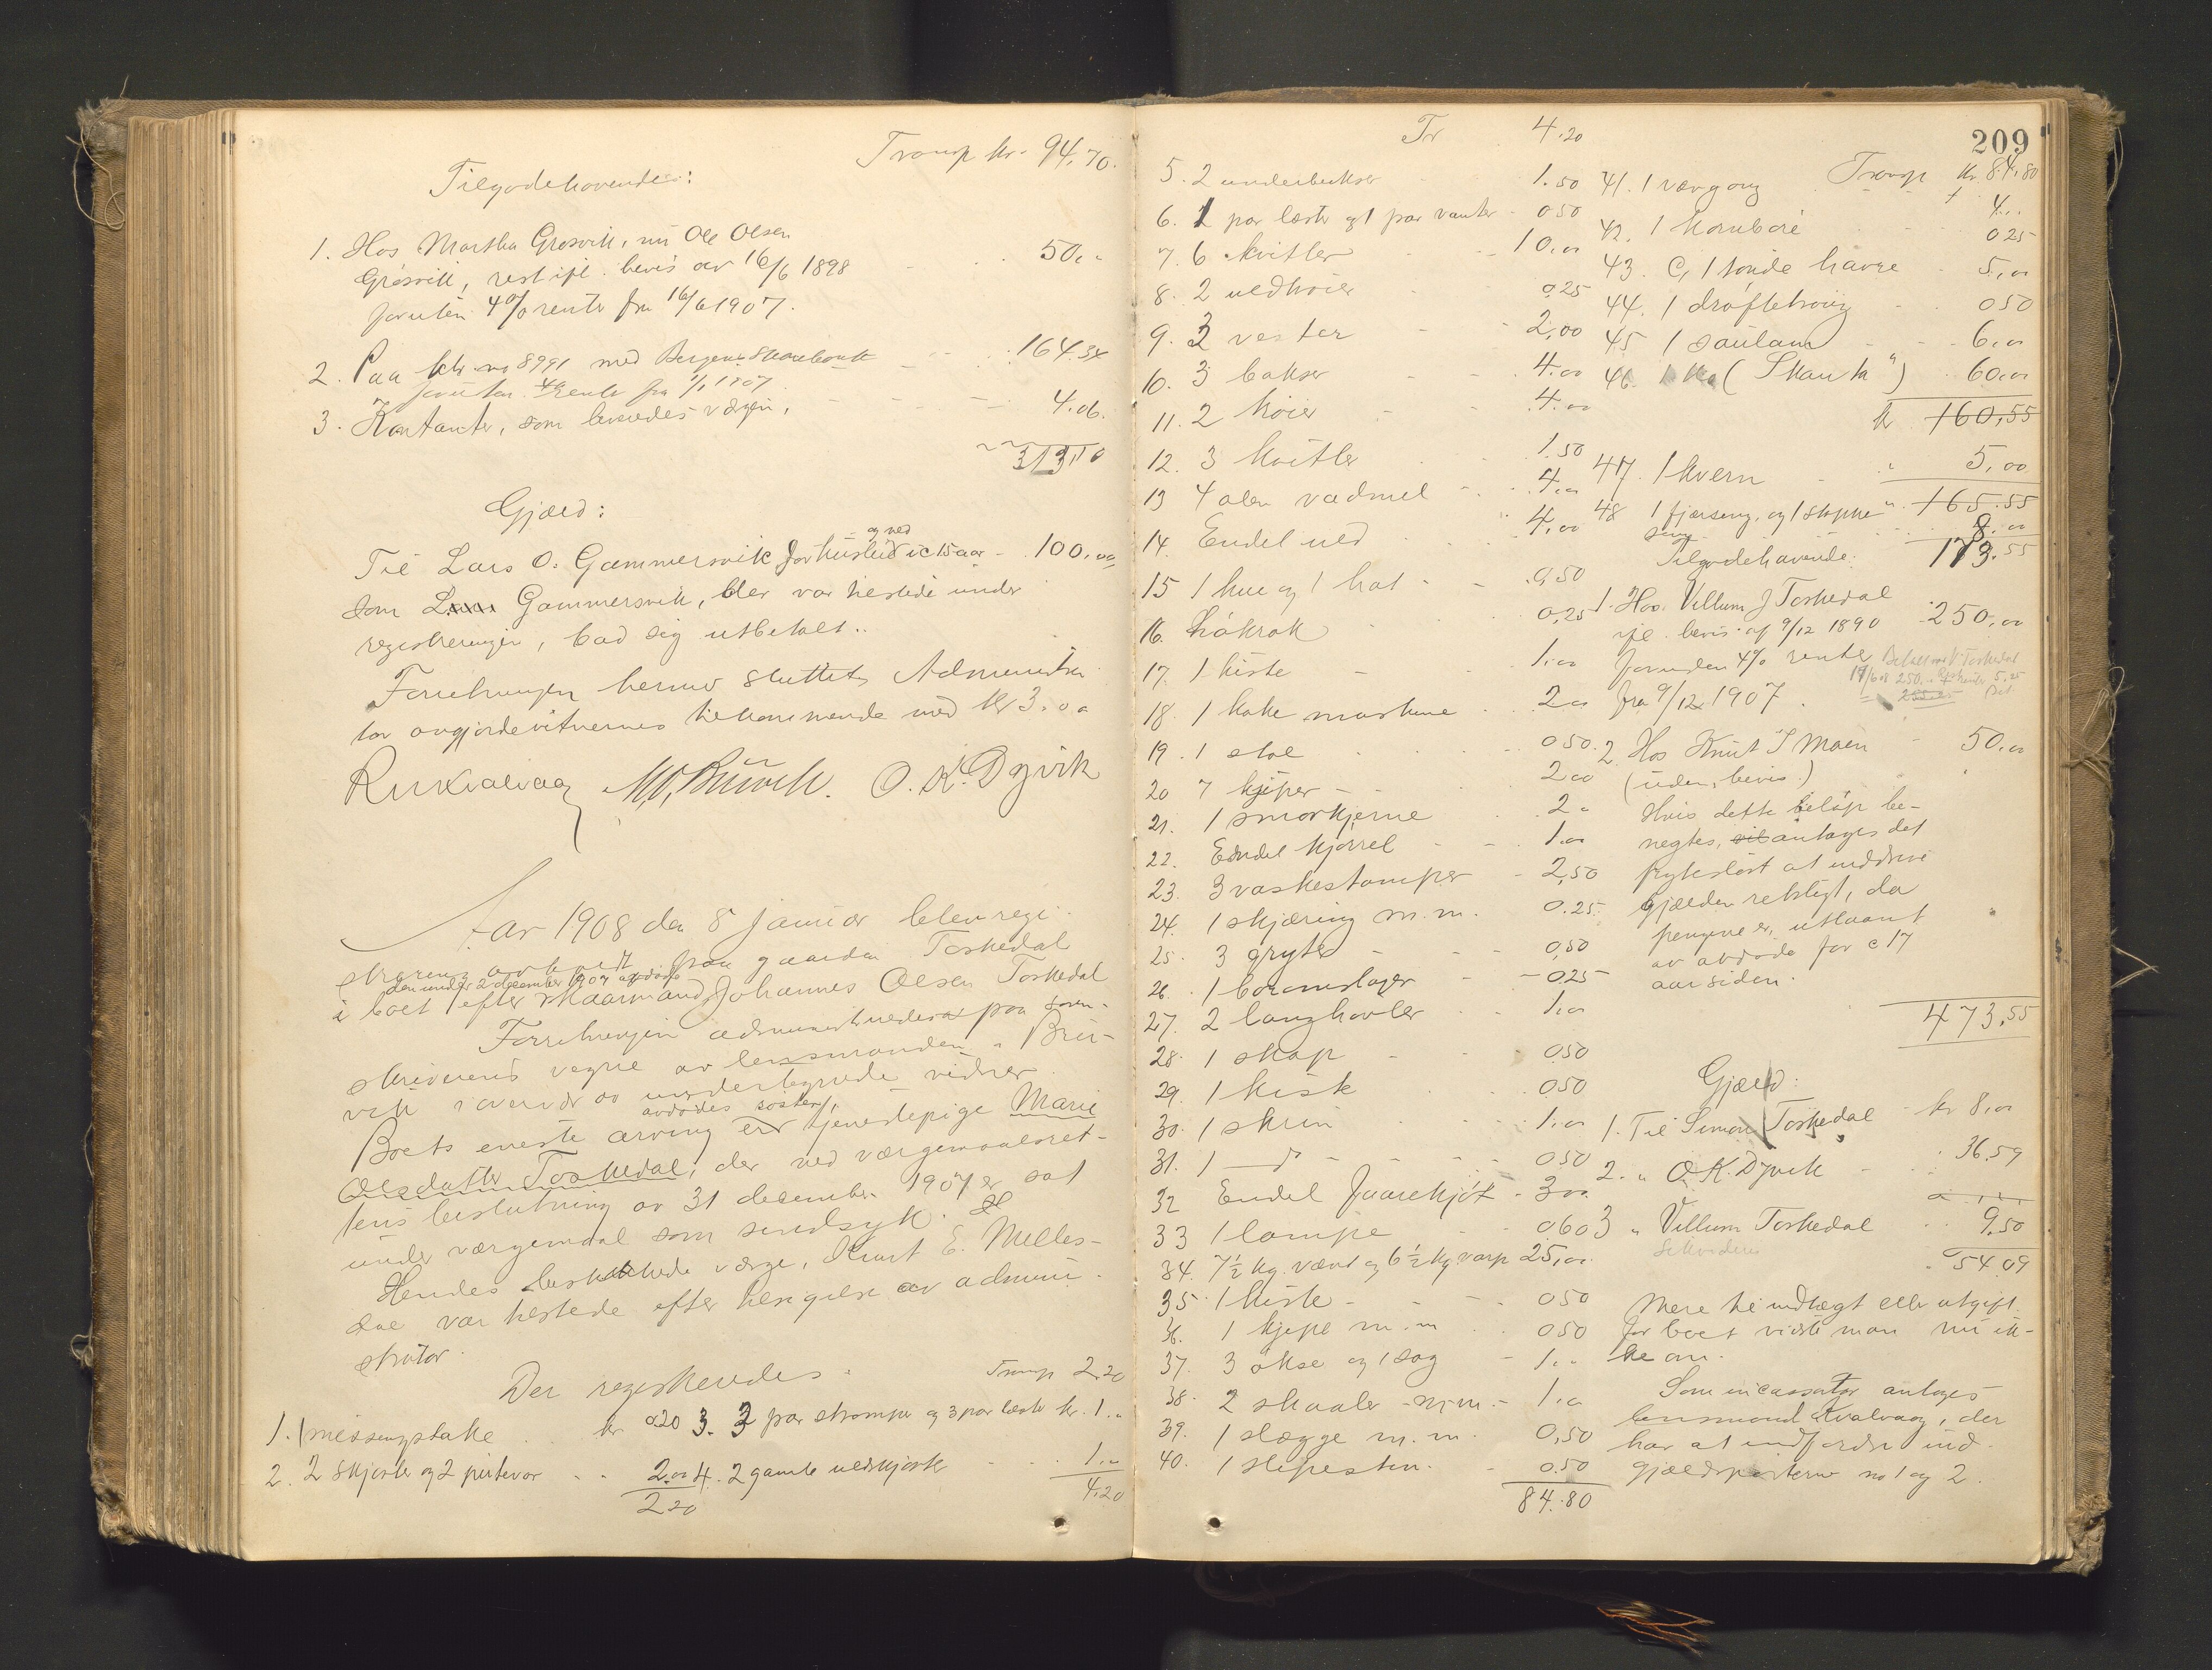 Transp kr. 94,70.
Tilgodehavender:
1. Hos Martha Grøsvik, nu Ole Olsen
Grøsvik, rest ifl. bevis av 16/6 1898 50,"
foruten 4% rente fra 16/6 1907.
2. Paa ktr. no 8991 med Bergens Skarebank 164.34
foruten rente fra 1/1 1907
3. Kontanter, som beroedes værgen, 4.06.
313,10
Gjæld:
og ved
Til Lars O. Gammersvik for husleie i c 15 aar 100,00
som Gammersvik, der var tilstede under
registreringen, bad sig utbetalt.
Forretningen hermed sluttet. Administra
tor avgjorde vitnernes tilkommende med kr 3.00
R. Kvalvaag M. O. Brüvik. O. K. Dyvik
Aar 1908 den 8 januar blev regi
strering avholdt paa gaarden Toskedal
den under 2 december 1907 avdøde
i boet efter Kaarmand Johannes Olsen Toskedal
Forretningen administreredes paa soren-
skriverens vegne av lensmanden i Brü-
vik i overvær av undertegnede vidner.
avdødes søster,
Boets eneste arving er tjenestepige Marie
Olsdatter Toskedal, der ved værgemaalsret-
tens beslutning av 31 december 1907 er sat
under værgemaal som sindsyk.
Hendes beskikkede værge, Knut E. Milles-
dal var tilstede efter tilsigelse av admini-
strator.
Der registreredes:
Transp 2.20
1. 1 messingstake kr. 0.20 3. 3 par strømper og 3 par læster kr. 1."
2. 2 skjorter og 2 2.00 4. 2 gamle uldskjorter 1."
2.20 4.20
209
Tr 4.20
5. 2 underbukser 1.50
6. 1 par læster og 1 par vanter 0.50
7. 6 kvitler 10.00
8. 2 uldtrøier 0.25
9. 3 vester 2.00
10. 3 bukser 4.00
11. 2 trøier 4.00
12. 3 kvitler 1.50
13 4 alen vadmel 4.00
14. Endel uld 4.00
15 1 hue og 1 hat 0,50
16. 0,25
17. 1 kiste 1.00
18. 1 kakemaskine 2.00
19. 1 stol 0.50
20 7 kjiper 2.00
21. 1 smørkjerne 2."
22. Endel kjørrel 1.00
23. 3 vaskestamper 2,50
24. 1 skjæring m.m. 0.25
25. 3 gryter 0,50
26. 1 0.25
27. 2 langhøvler 1.00
28. 1 skap 0.50
29. 1 kiste 0.50
30. 1 skrin 1.00
31. 1 do 0.50
32 Endel faarekjøt 3.00
33 1 lampe 0.60
34. 7 1/2 kg. vævt og 6 1/2 kg. varp 25,00
35. 1 kiste 0.50
36. 1 kjipe m.m 0.50
37. 3 økse og 1 sag 1."
38. 2 skaaler m.m. 1."
39. 1 slægge m.m. 0,50
40. 1 slipesten 0.50
84.80
Transp kr. 84.80
41. 1 vævgang 4."
42. 1 0.25
43. C, 1 tønde havre 5,00
44. 1 drøftetroug 0.50
45 1 saulam 6.00
46. 1 ko ("Skauta") 60.00
kr 160,55
47. 1 kvern 5,00
165.55
48 1 fjærseng, og 1 stoppet
seng 8.00
173.55
Tilgodehavende:
1. Hos Villum J Toskedal
ifl. bevis af 9/12 1890 250,00
foruden 4% rente
fra 9/12 1907.
2. Hos Knut I Moen 50.00
(uden bevis.)
Hvis dette beløp be-
negtes, antages det
frykesløst at inddrive
gjælden retsligt, da
pengene er utlaant
av avdøde for c 17
aar siden.
473,55
Gjæld:
1. Til Simon Toskedal kr 8,00
2. " O. K. Dyvik 36.59
3 " Villum Toskedal 9,50
54.09
Mere til indtægt eller utgift
for boet vidste man nu ik-
ke om.
Som incassator antages
lensmand Kvalvaag, der
har at indfordre ind-
gjældsposterne no 1 og 2.